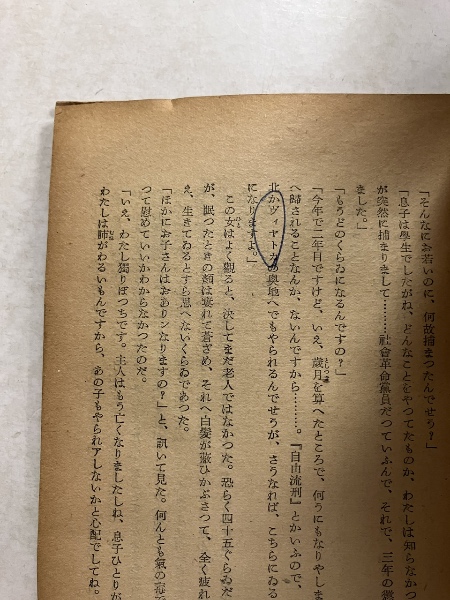 「そんなにお若いのに、何故捕まつたんでせう？」
「息子は學生でしたがね、どんなことをやつてたものか、わたしは知らなかつ
が突然に捕まりまして………社會革命黨員だつていふんで、それで、三年の懲
ました。」
「もうどのくらゐになるんですの？」
「今年で二年目ですけど、いえ、歳月を算へたところで、何うにもなりやしま
へ歸されることなんか、ないんですから………。『自由流刑』とかいふので、
北かヴィヤトカの奥地へでもやられるんでせうが、さうなれば、こちらにゐる
になりますよ。」
この女はよく觀ると、決してまだ老人ではなかつた。恐らく四十五ぐらゐだ
が、眠つたときの顏は衰れて蒼ざめ、それへ白髮が蔽ひかぶさつて、全く疲れ
え、生きてゐるとすら思へないくらゐであつた。
「ほかにお子さんはおありンなりますの？」と、訊いて見た。何んとも氣の毒で
つて慰めていいかわからなかつたのだ。
「いえ、わたし獨りぽつちです。主人はもう亡くなりましたしね、息子ひとりが
わたしは肺がわるいもんですから、あの子もやられアしないかと心配でしてね。